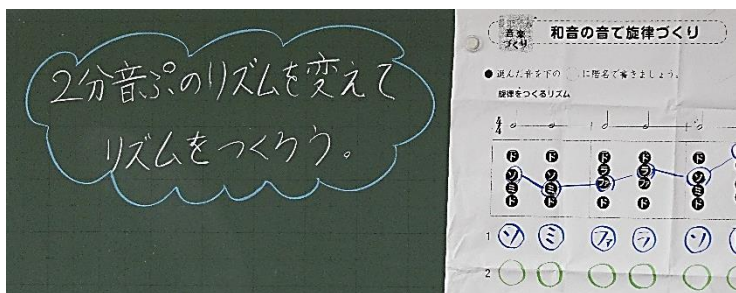 2分音ぷのリズムを変えて
リズムをつくろう。
音楽づくり
和音の音で旋律づくり
● 選んだ音を下の◯に階名で書きましょう。
旋律をつくるリズム
4/4
ド ド ド ド ド
ソ ソ ラ ラ ソ
ミ ミ ファ ファ ミ
ド ド ド ド ド
1 ソ ミ ファ ラ ソ
2